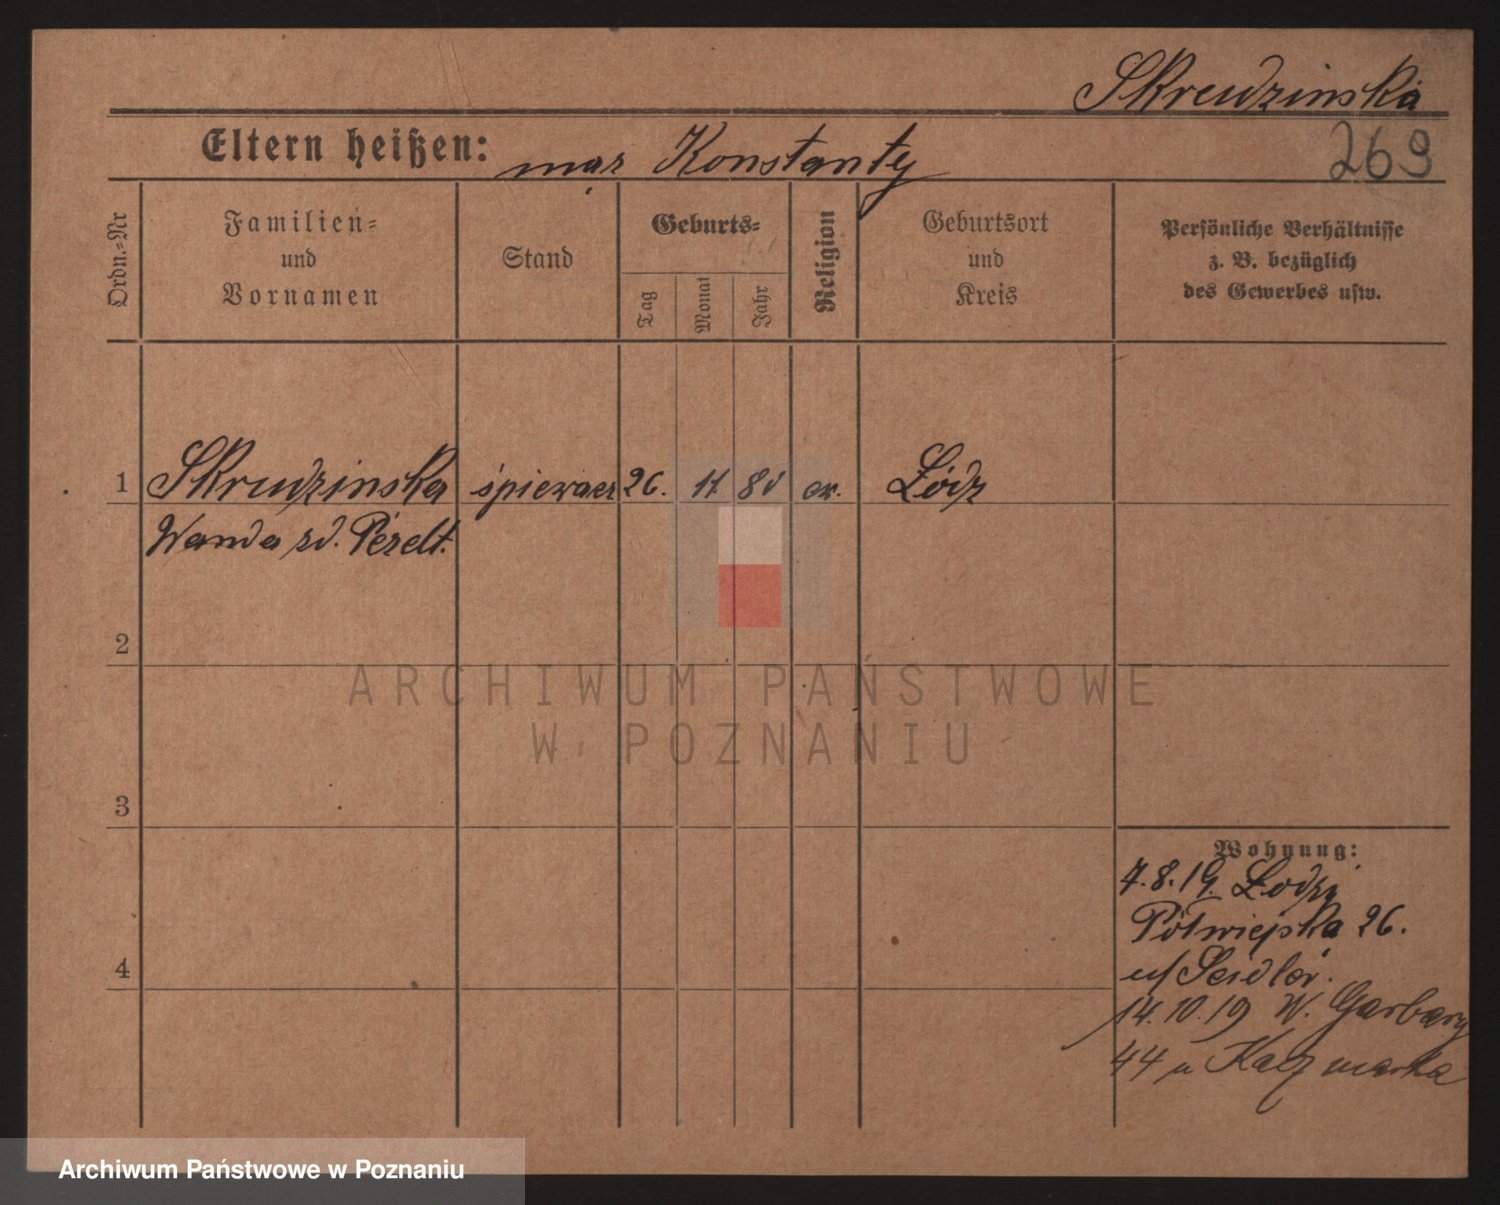 Skrudzinska
Eltern heißen: mąż Konstanty
269
Ordn.=Nr
Familien=
und
Vornamen
Stand
Geburts=
Tag
Monat
Jahr
Religion
Geburtsort
und
Kreis
Persönliche Verhältnisse
z. B. bezüglich
des Gewerbes usw.
1 Skrudzinska śpiewacz 26. 11 81 ew. Łódz
Wanda zd. Pezelt.
2
3
4
Wohnung:
7.8.19. Łodzi
Półwiejska 26.
u/ Seidler.
14.10.19 W. Garbary
44 u Kaczmarka
ARCHIWUM PAŃSTWOWE
W POZNANIU
Archiwum Państwowe w Poznaniu